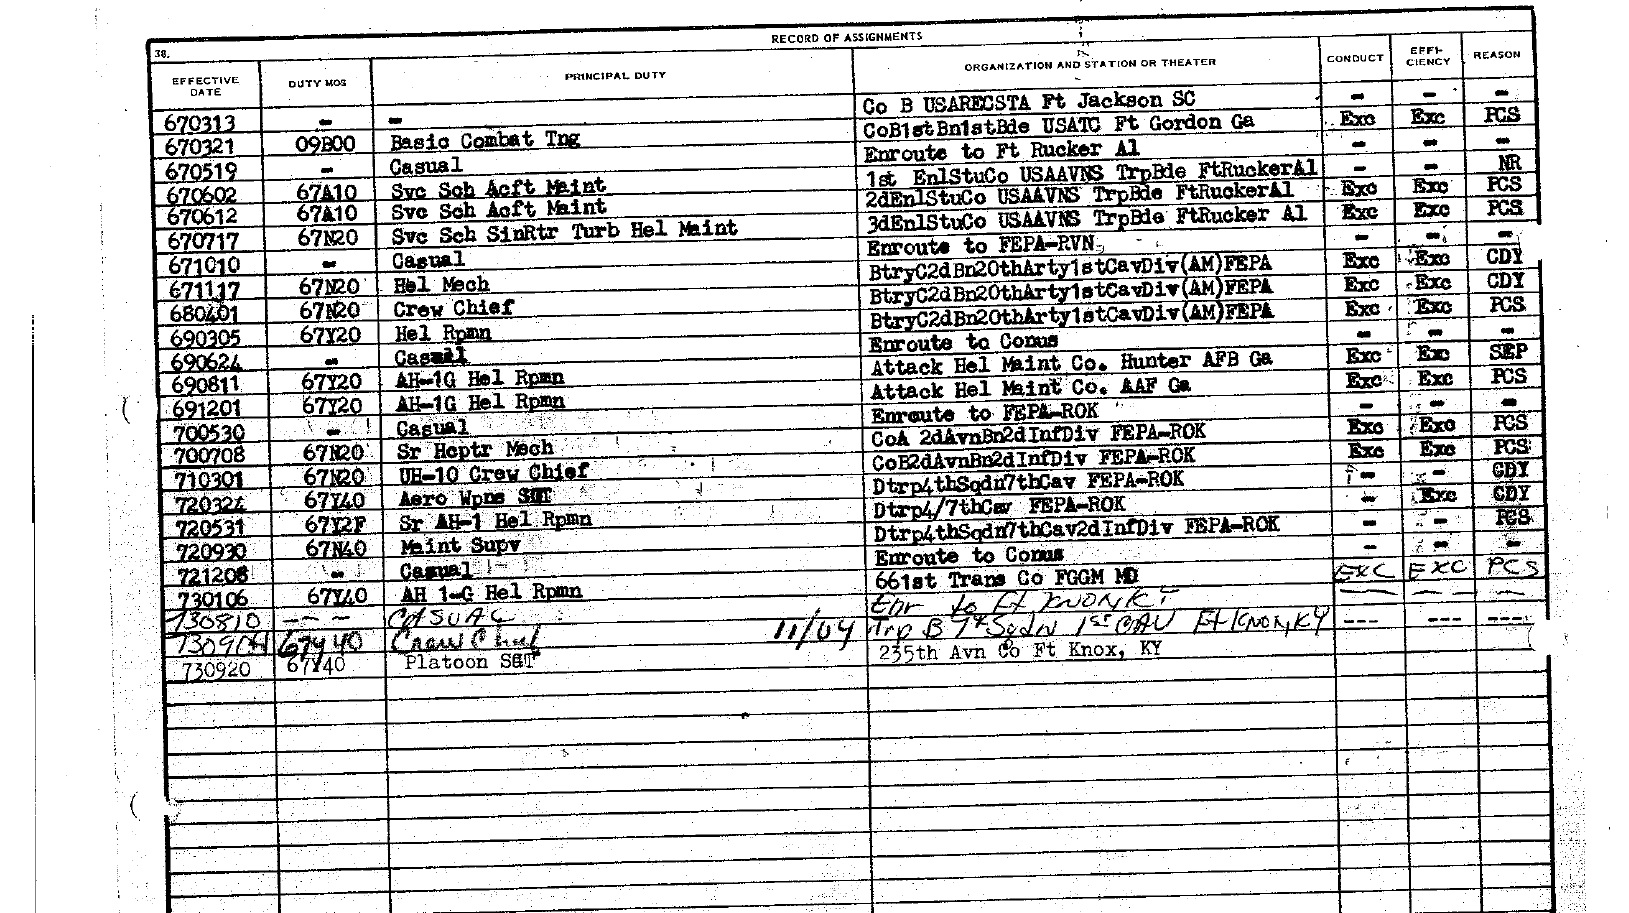 38.
RECORD OF ASSIGNMENTS
EFFECTIVE DATE DUTY MOS PRINCIPAL DUTY ORGANIZATION AND STATION OR THEATER CONDUCT EFFI-CIENCY REASON
670313 - - Co B USARECSTA Ft Jackson SC - - -
670321 09B00 Basic Combat Tng CoB1stBn1stBde USATC Ft Gordon Ga Exc Exc PCS
670519 - Casual Enroute to Ft Rucker Al - - -
670602 67A10 Svc Sch Acft Maint 1st EnlStuCo USAAVNS TrpBde FtRuckerAl - - NR
670612 67A10 Svc Sch Acft Maint 2dEnlStuCo USAAVNS TrpBde FtRuckerAl Exc Exc PCS
670717 67N20 Svc Sch SinRtr Turb Hel Maint 3dEnlStuCo USAAVNS TrpBde FtRucker Al Exc Exc PCS
671010 - Casual Enroute to FEPA-RVN - - -
671117 67N20 Hel Mech BtryC2dBn20thArty1stCavDiv(AM)FEPA Exc Exc CDY
680401 67N20 Crew Chief BtryC2dBn20thArty1stCavDiv(AM)FEPA Exc Exc CDY
690305 67Y20 Hel Rpmn BtryC2dBn20thArty1stCavDiv(AM)FEPA Exc Exc PCS
690624 - Casual Enroute to Conus - - -
690811 67Y20 AH-1G Hel Rpmn Attack Hel Maint Co. Hunter AFB Ga Exc Exc SEP
691201 67Y20 AH-1G Hel Rpmn Attack Hel Maint Co. AAF Ga Exc Exc PCS
700530 - Casual Enroute to FEPA-ROK - - -
700708 67N20 Sr Hcptr Mech CoA 2dAvnBn2dInfDiv FEPA-ROK Exc Exc PCS
710301 67N20 UH-10 Crew Chief CoB2dAvnBn2dInfDiv FEPA-ROK Exc Exc PCS
720324 67Y40 Aero Wpns SGT Dtrp4thSqdn7thCav FEPA-ROK - - CDY
720531 67Y2F Sr AH-1 Hel Rpmn Dtrp4/7thCav FEPA-ROK - Exc CDY
720930 67N40 Maint Supv Dtrp4thSqdn7thCav2dInfDiv FEPA-ROK - - PCS
721208 - Casual Enroute to Conus - - -
730106 67Y40 AH 1-G Hel Rpmn 661st Trans Co FGGM MD EXC EXC PCS
730810 - - - CASUAL Enr to Ft KNOX, KY - - -
67Y40 Crew Chief 11/04 Trp B 7th Sqdn 1st CAV Ft KNOX, KY --- --- ----
730920 67Y40 Platoon SGT 235th Avn Co Ft Knox, KY